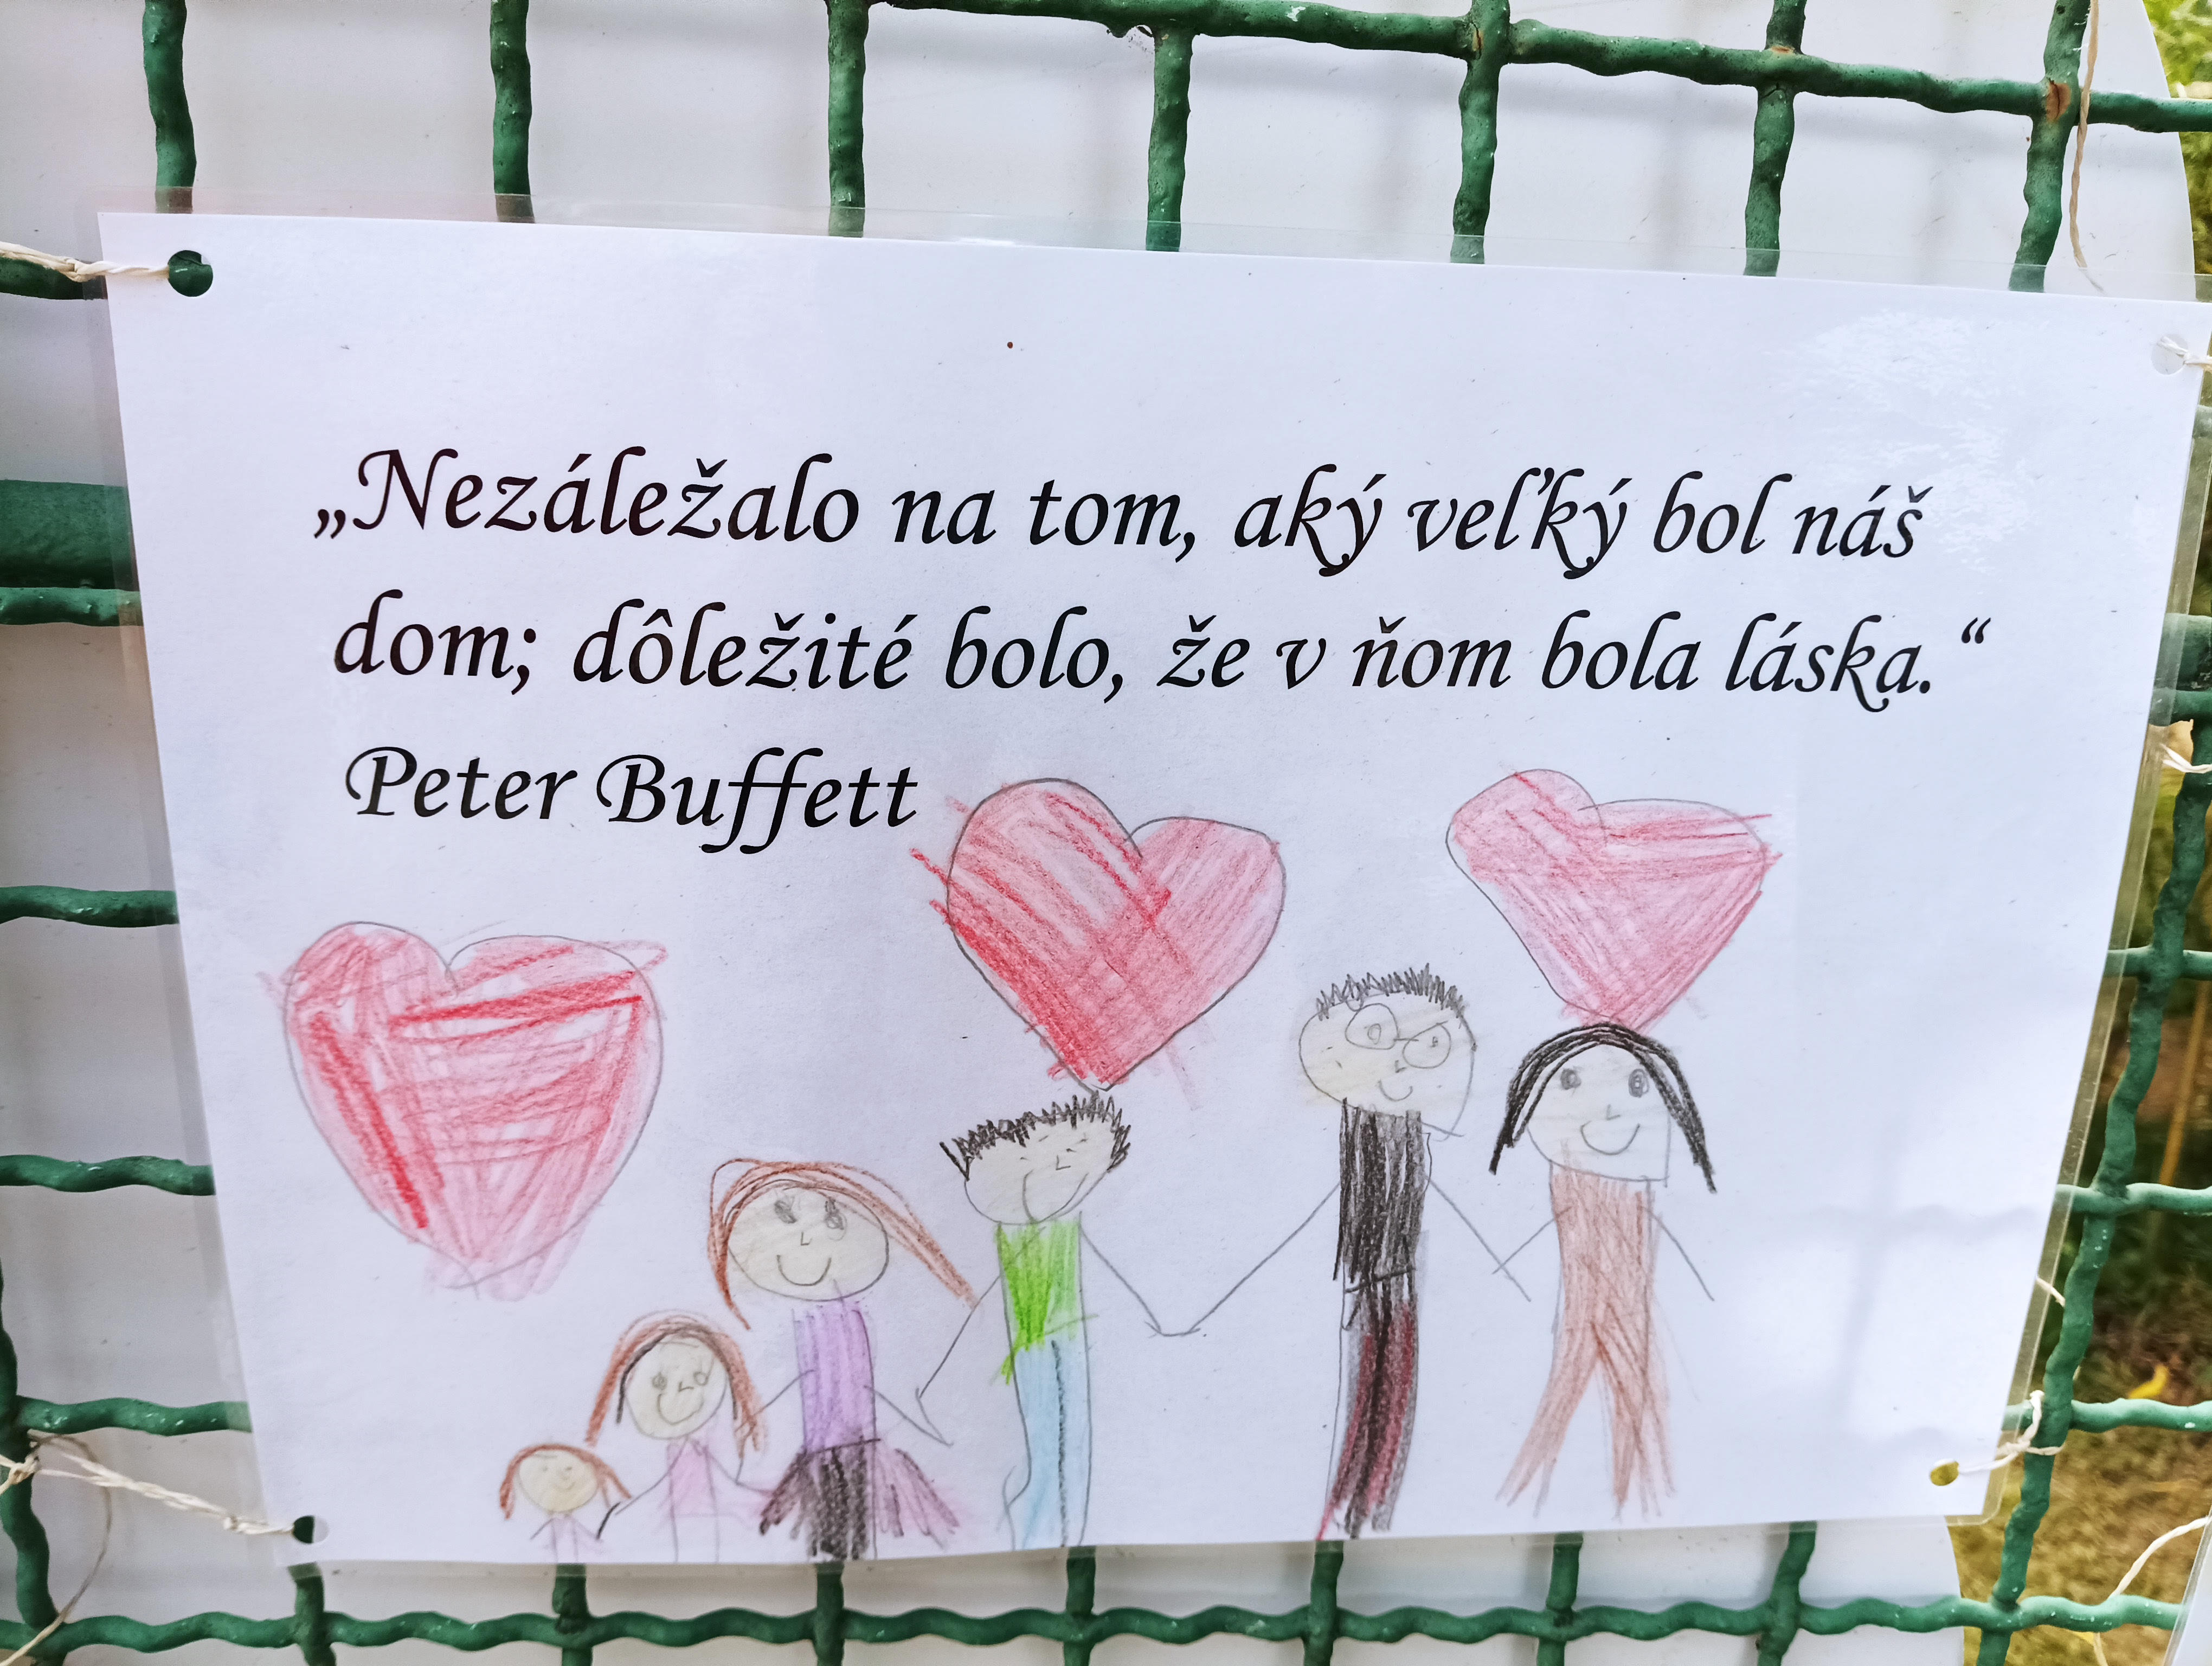 „Nezáležalo na tom, aký veľký bol náš
dom; dôležité bolo, že v ňom bola láska.“
Peter Buffett